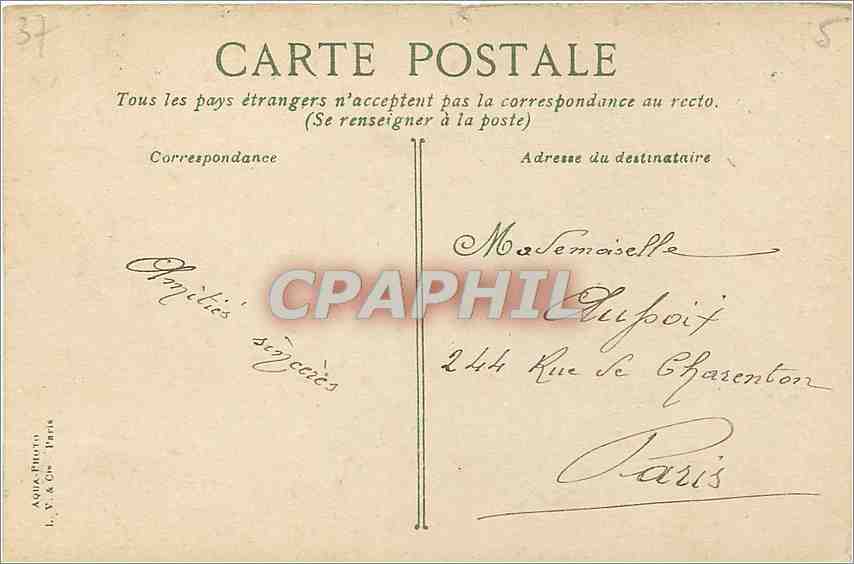 37
5
CARTE POSTALE
Tous les pays étrangers n'acceptent pas la correspondance au recto.
(Se renseigner à la poste)
Correspondance
Amitiés
sincères
Adresse du destinataire
Mademoiselle
244 Rue de Charenton
Paris
AQUA-PHOTO
L. V. & Cie Paris
CPAPHIL